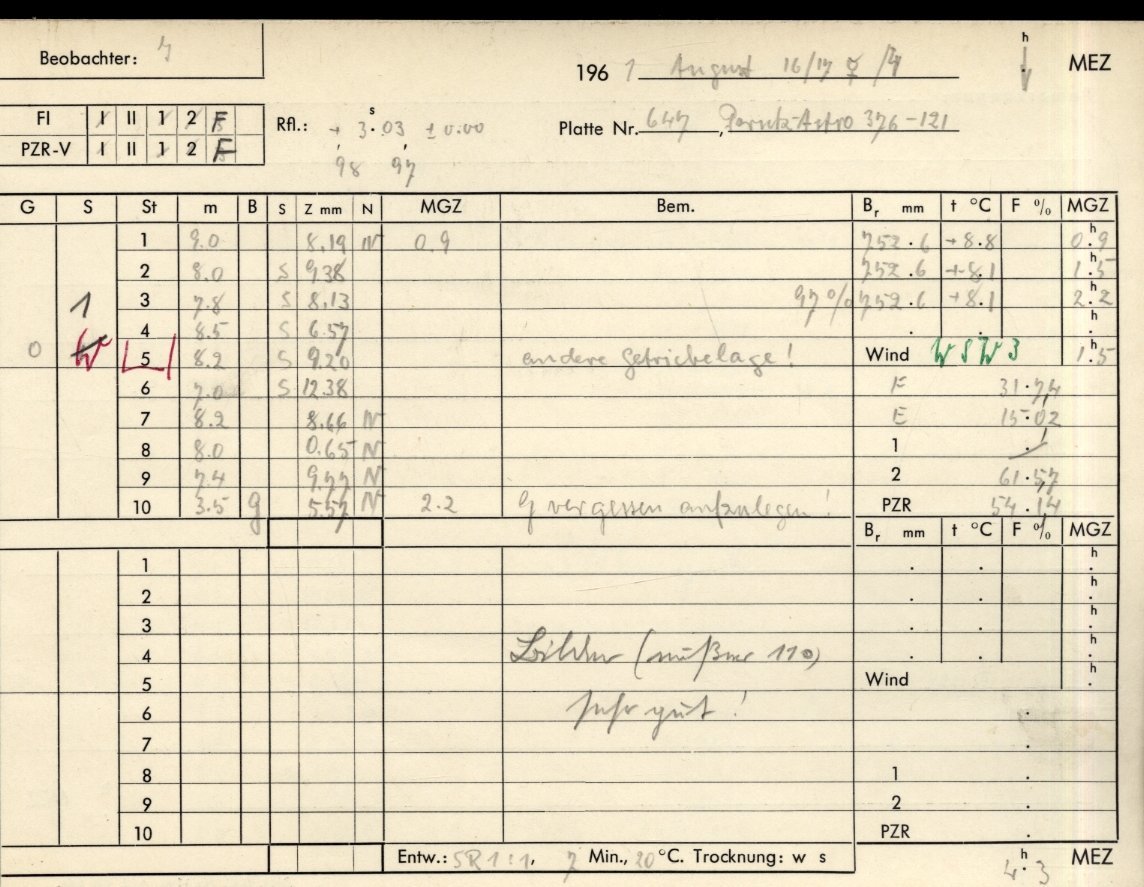 Beobachter:
1961 August 16/17
h MEZ
FI I II 1 2 F
PZR-V I II 1 2 F
Rfl.: + 3.03 s ± 0.00
98 97
Platte Nr. 647, Perutz-Astro 376-121
G S St m B S Z mm N MGZ Bem. Br mm t °C F % MGZ
1 9.0 8.19 N 0.9 752.6 +8.8 0.9 h
2 8.0 S 9.38 752.6 +8.1 1.5 h
1 3 7.8 S 8.13 97% 752.6 +8.1 2.2 h
4 8.5 S 6.57 . . h
0 W 5 8.2 S 9.20 andere Getriebelage! Wind WSW 3 1.5 h
6 7.0 S 12.38 F 31.74
7 8.2 8.66 N E 15.02
8 8.0 0.65 N 1 .
9 7.4 9.77 N 2 61.57
10 3.5 g 5.57 N 2.2 g vergessen aufzulegen! PZR 54.14
Br mm t °C F % MGZ
1 . . h
2 . . h
3 . . h
4 Bilder (außer 110) . . h
5 Wind h
6 sehr gut! .
7 .
8 1 .
9 2 .
10 PZR .
Entw.: SR 1:1, 7 Min., 20 °C. Trocknung: w s
4.3 h MEZ